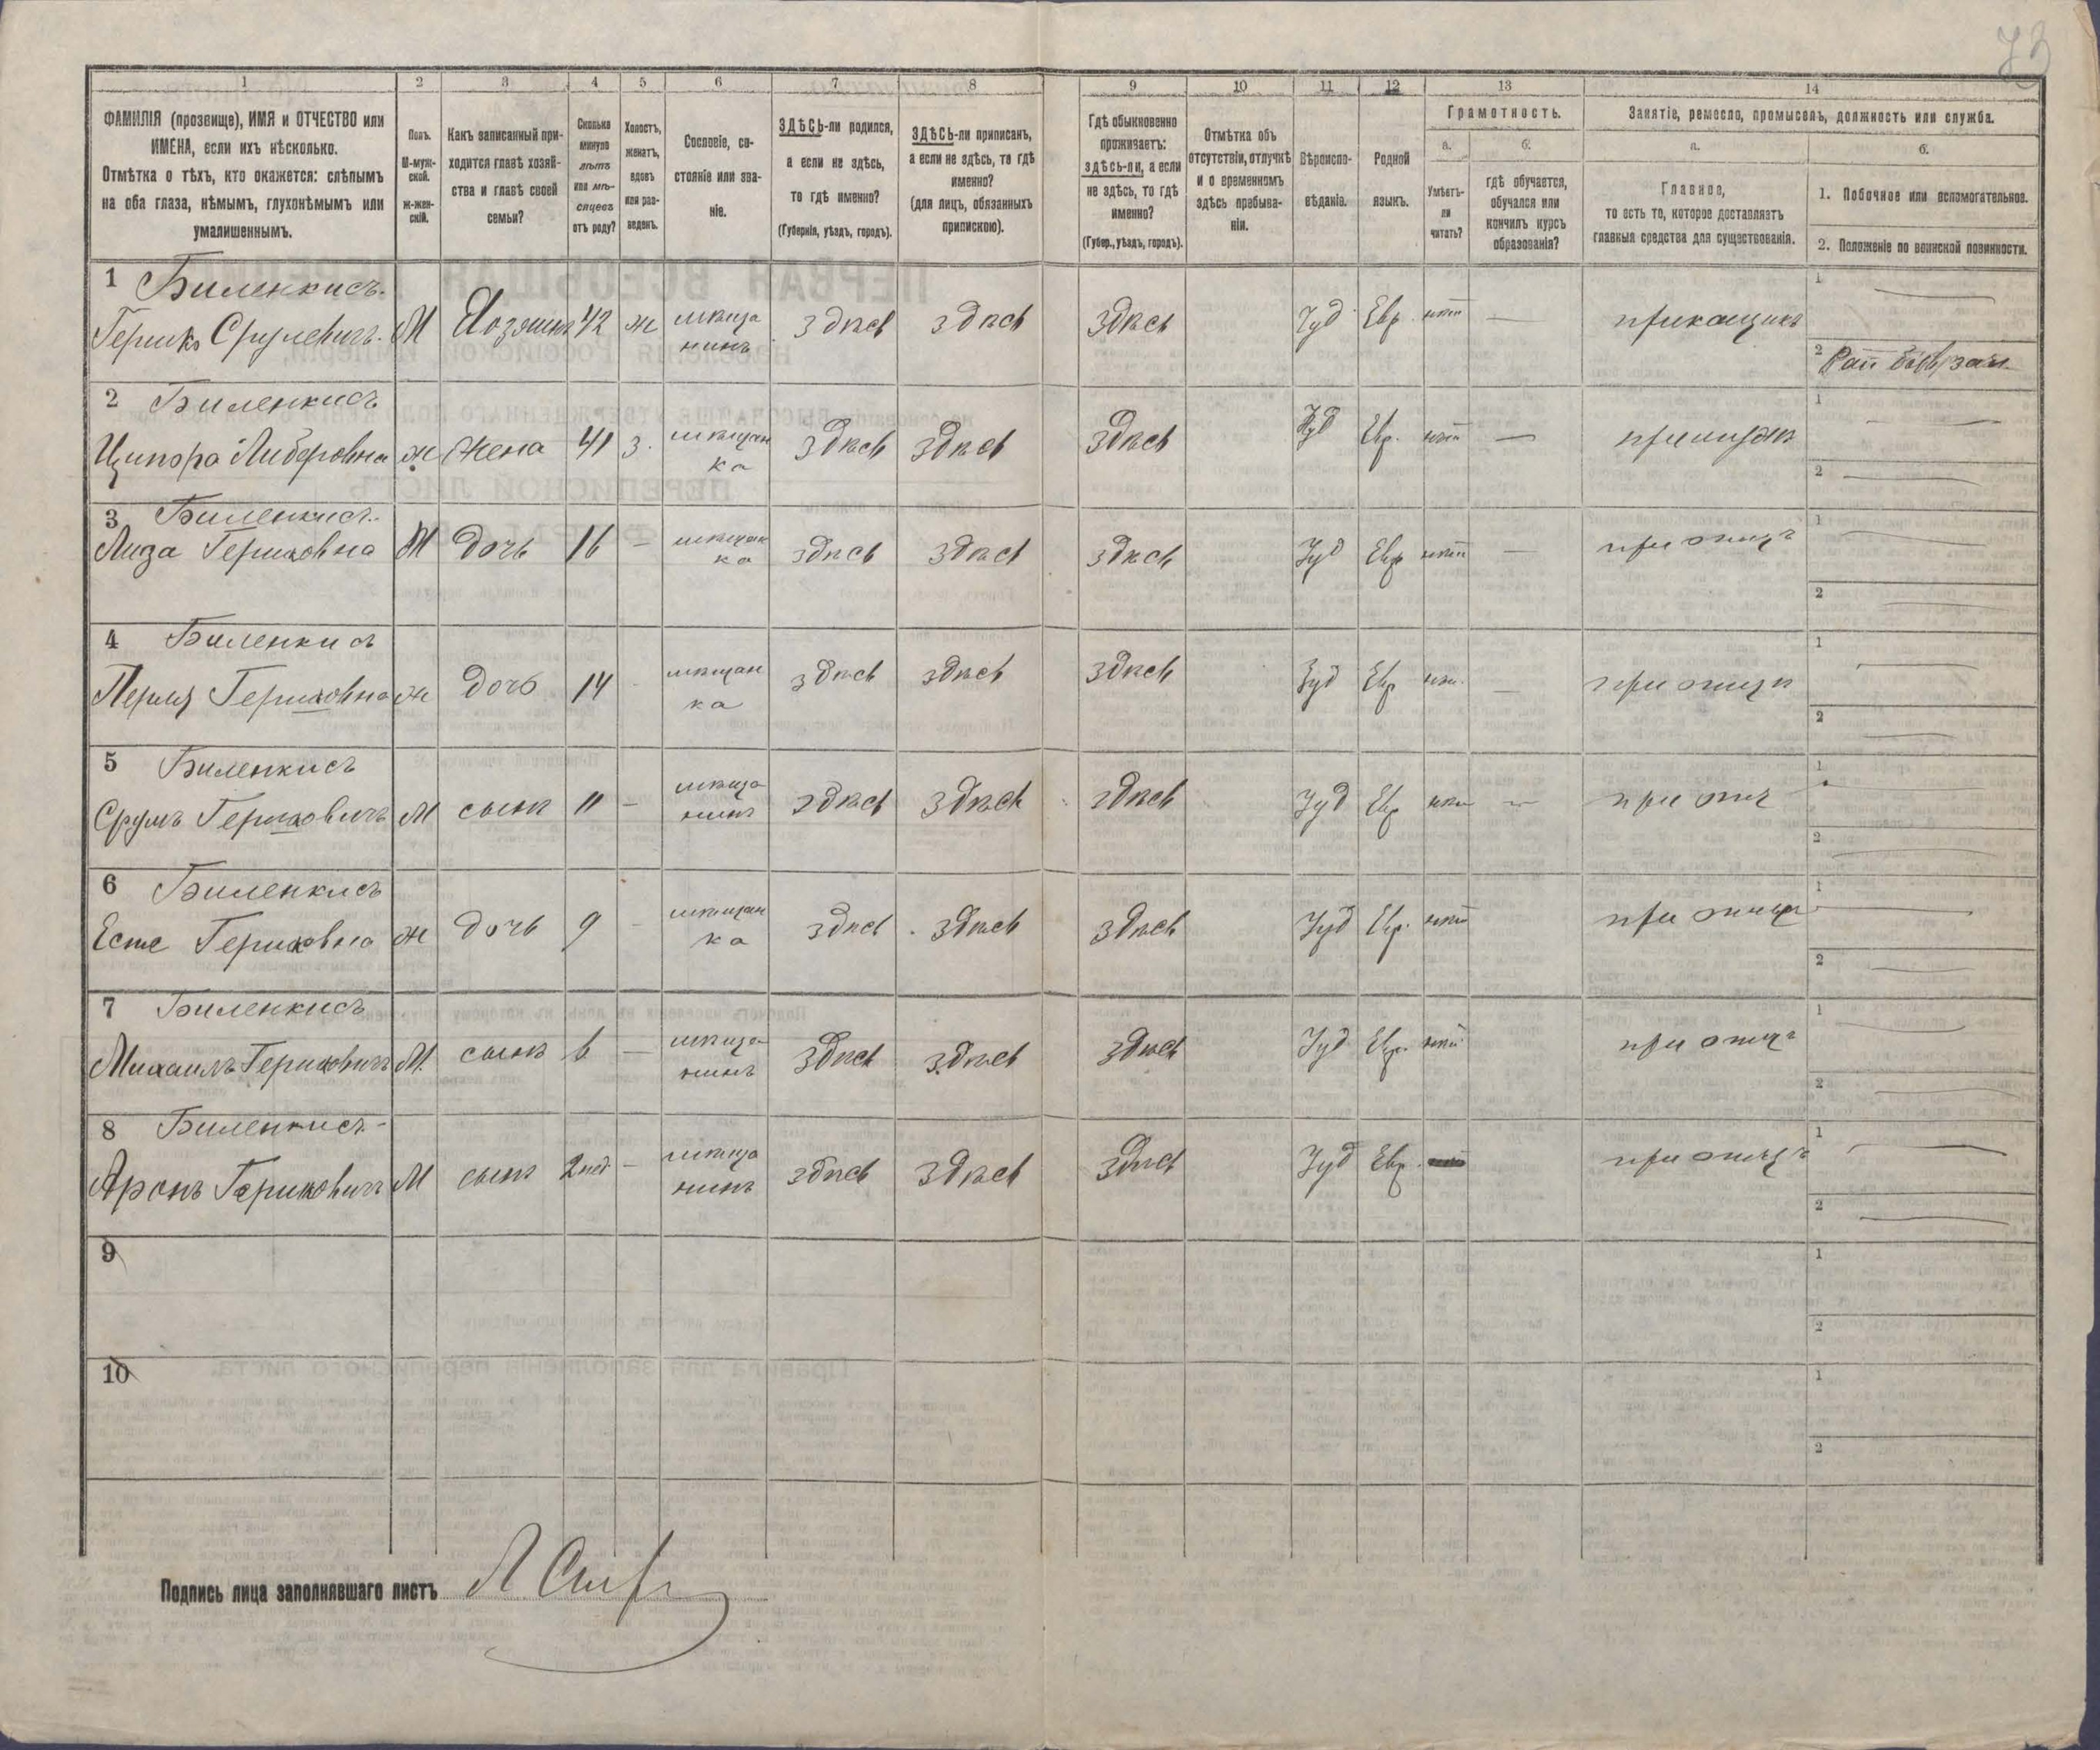 73
1 2 3 4 5 6 7 8 9 10 11 12 13 14
ФАМИЛІЯ (прозвище), ИМЯ и ОТЧЕСТВО или
ИМЕНА, если ихъ нѣсколько.
Отмѣтка о тѣхъ, кто окажется: слѣпымъ
на оба глаза, нѣмымъ, глухонѣмымъ или
умалишеннымъ.
Полъ.
М-муж-
ской.
Ж-жен-
скій.
Какъ записанный при-
ходится главѣ хозяй-
ства и главѣ своей
семьи?
Сколько
минуло
лѣтъ
или мѣ-
сяцевъ
отъ роду?
Холостъ,
женатъ,
вдовъ
или раз-
веденъ.
Сословіе, со-
стояніе или зва-
ніе.
ЗДѢСЬ-ли родился,
а если не здѣсь,
то гдѣ именно?
(Губернія, уѣздъ, городъ).
ЗДѢСЬ-ли приписанъ,
а если не здѣсь, то гдѣ
именно?
(для лицъ, обязанныхъ
припискою).
Гдѣ обыкновенно
проживаетъ:
здѣсь-ли, а если
не здѣсь, то гдѣ
именно?
(Губер., уѣздъ, городъ).
Отмѣтка объ
отсутствіи, отлучкѣ
и о временномъ
здѣсь пребыва-
ніи.
Вѣроиспо-
вѣданіе.
Родной
языкъ.
Грамотность.
а.
Умѣетъ-
ли
читать?
б.
гдѣ обучается,
обучался или
кончилъ курсъ
образованія?
Занятіе, ремесло, промыселъ, должность или служба.
а.
Главное,
то есть то, которое доставляетъ
главныя средства для существованія.
б.
1. Побочное или вспомогательное.
2. Положеніе по воинской повинности.
1 Биленкисъ
Гершко Срулевичъ М Хозяинъ 42 ж мѣща
нинъ здѣсь здѣсь здѣсь Іуд Евр. нѣтъ — прикащикъ 1 —
2
2 Биленкисъ
Ципора Либеровна ж жена 41 з. мѣщан
ка здѣсь здѣсь здѣсь Іуд Евр. нѣтъ — при мужѣ 1 —
2 —
3 Биленкисъ
Лиза Гершковна М дочь 16 — мѣщан
ка здѣсь здѣсь здѣсь Іуд Евр нѣтъ — при отцѣ 1 —
2 —
4 Биленкисъ
Перля Гершковна ж дочь 14 - мѣщан
ка здѣсь здѣсь здѣсь Іуд Евр — при отцѣ 1 —
2 —
5 Биленкисъ
Сруль Гершковичъ М сынъ 11 — мѣща
нинъ здѣсь здѣсь здѣсь Іуд Евр — при отц 1
2 —
6 Биленкисъ
Есте Гершковна ж дочь 9 - мѣщан
ка здѣсь здѣсь здѣсь Іуд Евр. нѣтъ при отцѣ 1 —
2 —
7 Биленкисъ
Михаилъ Гершковичъ М. сынъ 6 — мѣща
нинъ здѣсь здѣсь здѣсь Іуд Евр. нѣтъ при отцѣ 1 —
2 —
8 Биленкисъ
Аронъ Гершковичъ М сынъ — мѣща
нинъ здѣсь здѣсь здѣсь Іуд Евр. при отцѣ 1 —
2 —
9 1
2
10 1
2
Подпись лица заполнявшаго листъ